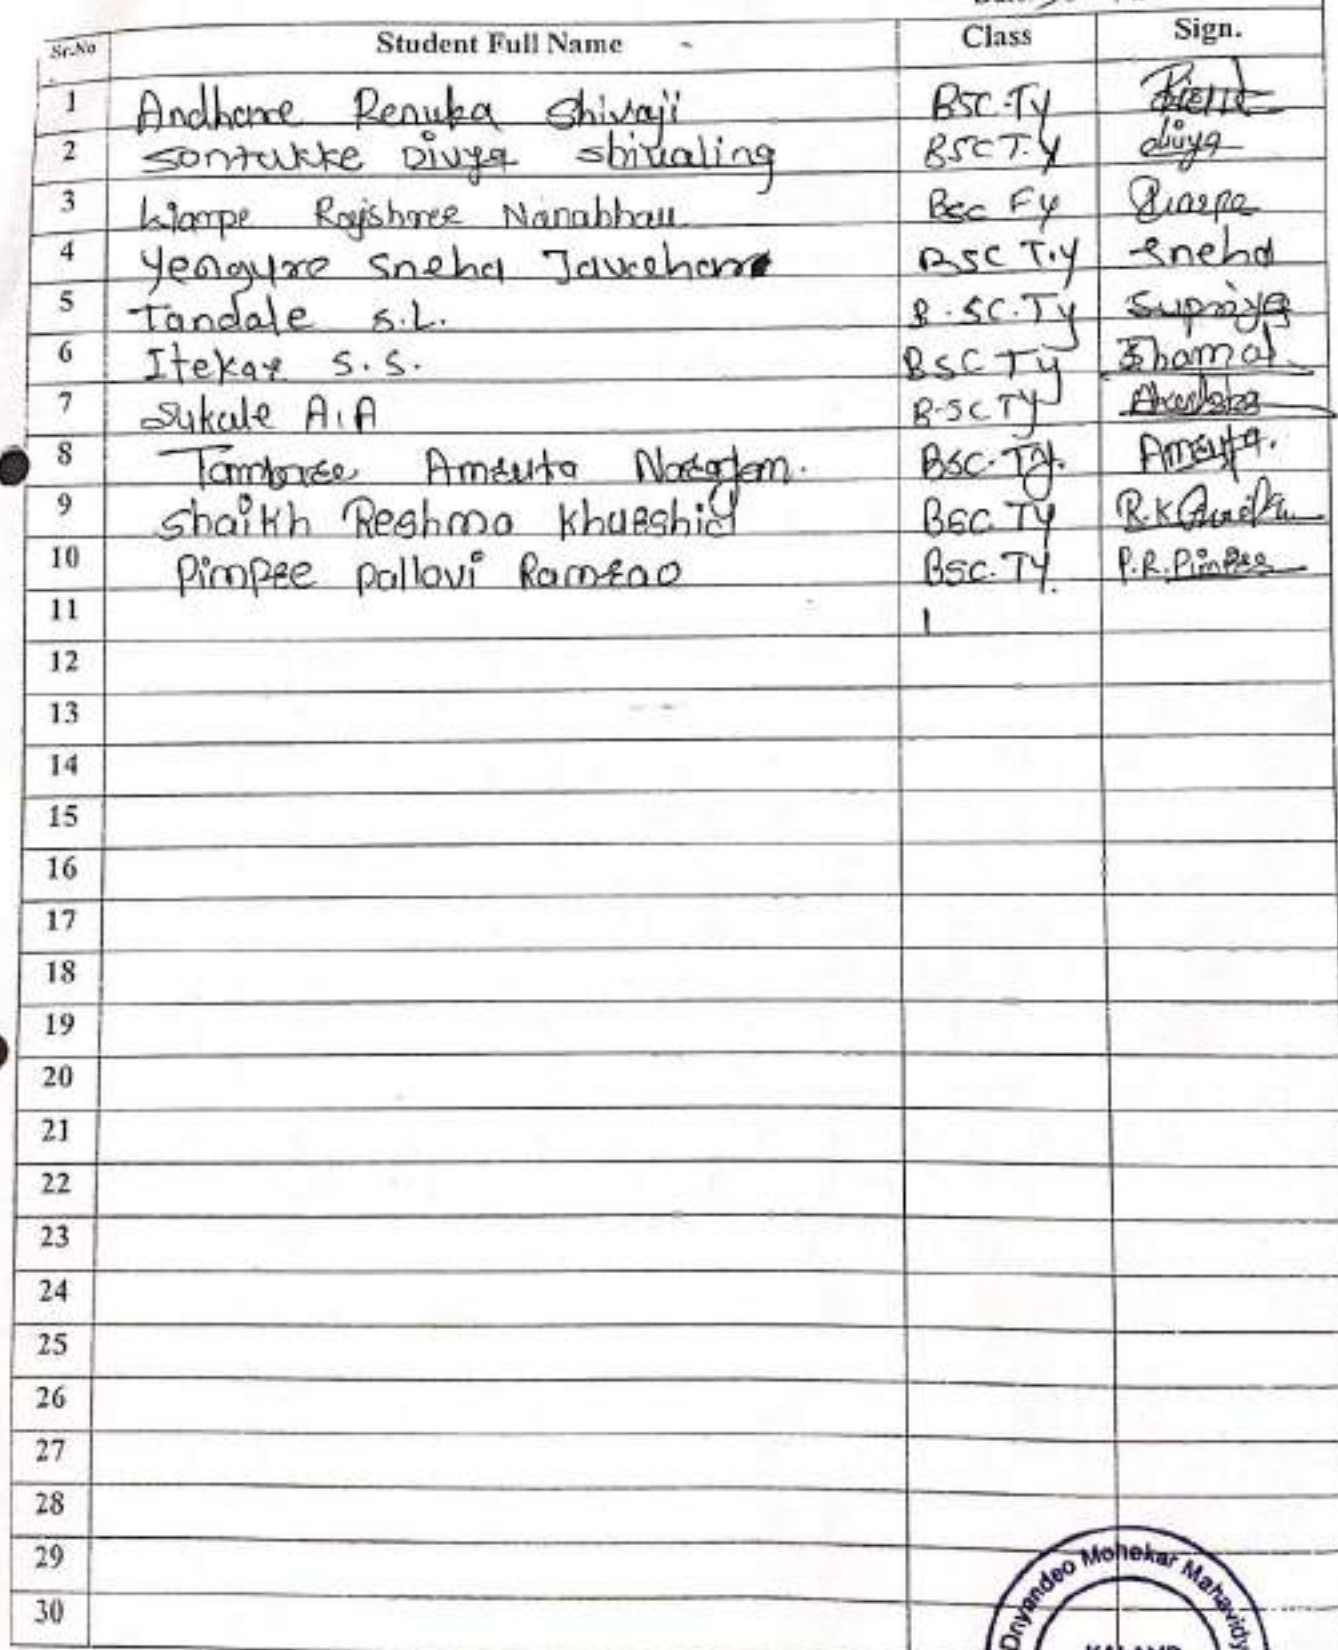 Sr.No Student Full Name Class Sign.
1 Andhare Renuka Shivaji BSC.Ty
2 Sontakke Divya Shivaling BSC T.y divya
3 Rajshree Nanabhau Bsc Fy
4 Sneha BSC T.y Sneha
5 Tandale S.L. B.SC.Ty Supriya
6 Itekar S.S. BSC Ty Shamal
7 A.A B.SC Ty
8 Amruta BSC.Ty. Amruta.
9 Shaikh Reshma Khurshid BSC Ty R.K
10 Pimpre Pallavi Ramrao BSC.Ty. P.R.Pimpre
11
12
13
14
15
16
17
18
19
20
21
22
23
24
25
26
27
28
29
30
Dnyandeo Mohekar Mahavidy